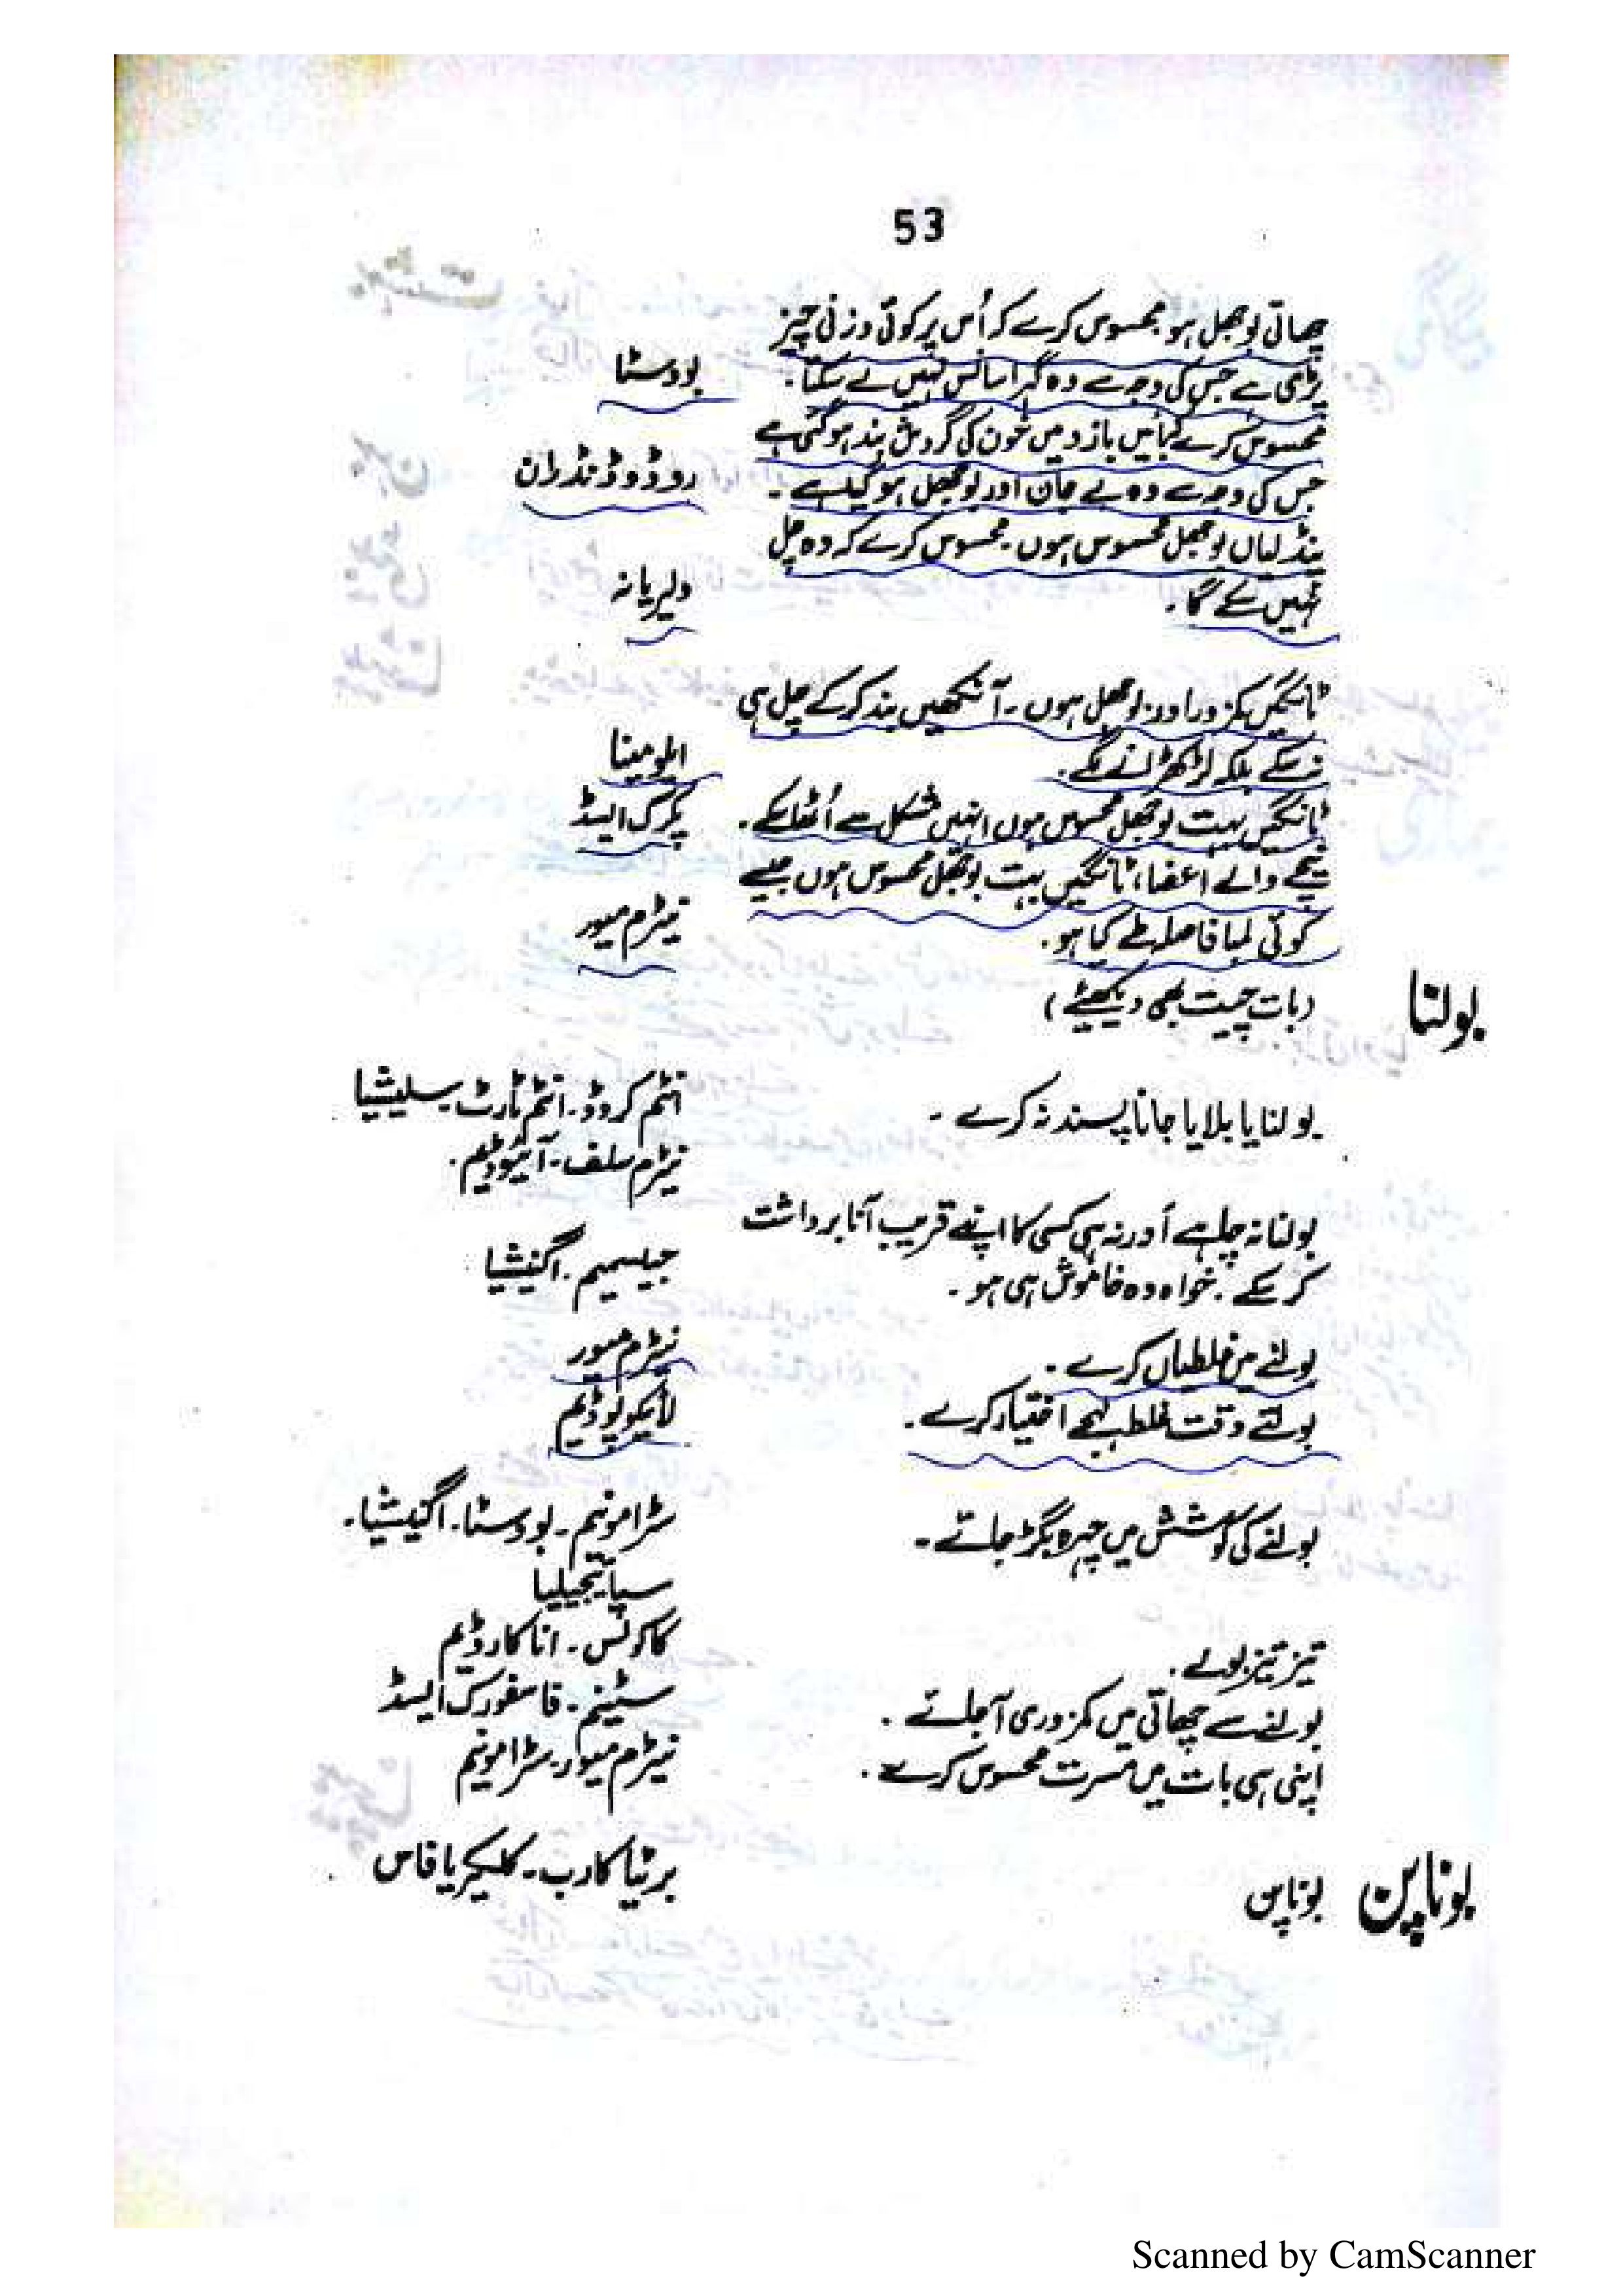 53
چھاتی بوجھل ہو محسوس کرے کہ اُس پر کوئی وزنی چیز
پڑی ہے جس کی وجہ سے وہ گہرا سانس نہیں لے سکتا۔ بووسٹا
محسوس کرے کہ بائیں بازو میں خون کی گردش بند ہو گئی ہے
جس کی وجہ سے وہ بے جان اور بوجھل ہو گیا ہے۔ روڈوڈنڈران
پنڈلیاں بوجھل محسوس ہوں۔ محسوس کرے کہ وہ چل
نہیں سکے گا۔ ولیریانہ
ٹانگیں کمزور اور بوجھل ہوں۔ آنکھیں بند کر کے چل ہی
نہ سکے بلکہ لڑکھڑانے لگے۔ ایلومینا
ٹانگیں بہت بوجھل محسوس ہوں انہیں مشکل سے اُٹھا سکے۔ پکرک ایسڈ
نیچے والے اعضاء، ٹانگیں بہت بوجھل محسوس ہوں جیسے
کوئی لمبا فاصلہ طے کیا ہو۔ نیٹرم میور
بولنا (بات چیت بھی دیکھئے)
بولنا یا بلایا جانا پسند نہ کرے۔ انٹم کروڈ۔ انٹم ٹارٹ۔ سلیشیا
نیٹرم سلف۔ آئیوڈیم۔
بولنا نہ چاہے اور نہ ہی کسی کا اپنے قریب آنا برداشت
کر سکے۔ خواہ وہ خاموش ہی ہو۔ جیلسیمیم۔ اگنیشیا
بولنے میں غلطیاں کرے۔ نیٹرم میور
بولتے وقت غلط لہجے اختیار کرے۔ لائیکوپوڈیم
بولنے کی کوشش میں چہرہ بگڑ جائے۔ سٹرامونیم۔ بووسٹا۔ اگنیشیا۔
سپائیجیلیا
تیز تیز بولے۔ کاکولس۔ اناکارڈیم
بولنے سے چھاتی میں کمزوری آ جائے۔ سٹینم۔ فاسفورک ایسڈ
اپنی ہی بات میں مسرت محسوس کرے۔ نیٹرم میور۔ سٹرامونیم
بوناپن بوناپن برئیٹا کارب۔ کلیکریا فاس
Scanned by CamScanner